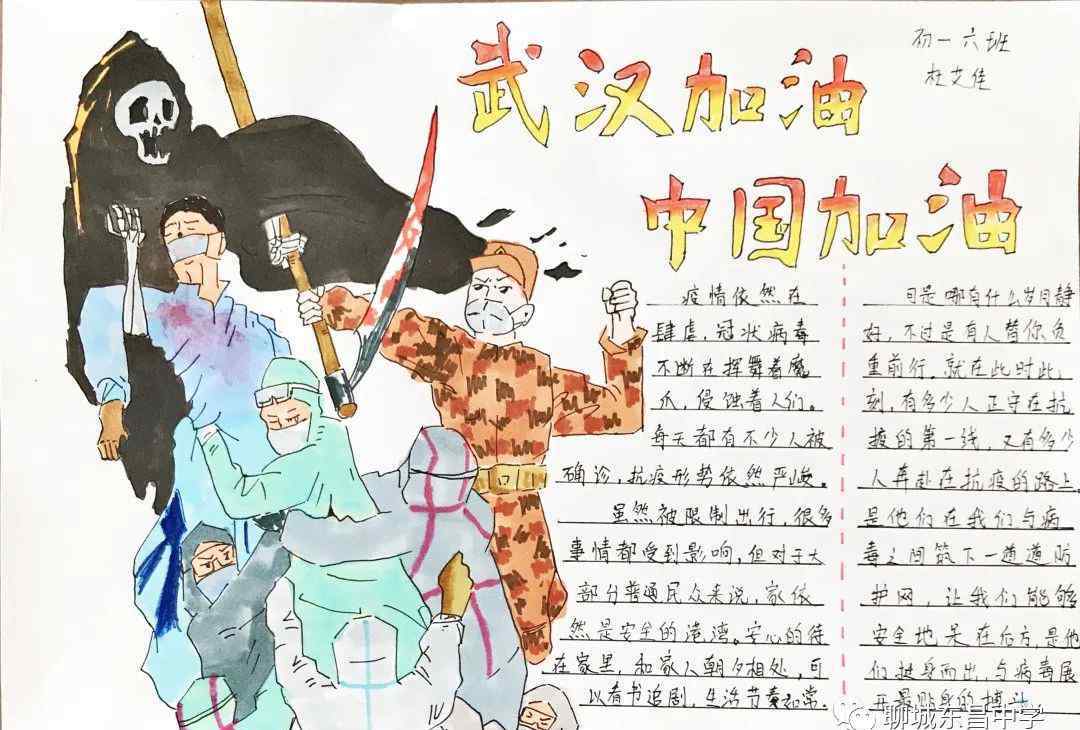 武汉加油
中国加油
初一六班
杜艾佳
疫情依然在
肆虐，冠状病毒
不断在挥舞着魔
爪，侵蚀着人们。
每天都有不少人被
确诊，抗疫形势依然严峻。
虽然被限制出行，很多
事情都受到影响，但对于大
部分普通民众来说，家依
然是安全的港湾。安心的待
在家里，和家人朝夕相处，可
以看书追剧，生活节奏如常。
可是哪有什么岁月静
好，不过是有人替你负
重前行。就在此时此
刻，有多少人正守在抗
疫的第一线，又有多少
人奔赴在抗疫的路上，
是他们在我们与病
毒之间筑下一道道防
护网，让我们能够
安全地呆在后方，是他
们挺身而出，与病毒展
开最贴身的搏斗
聊城东昌中学